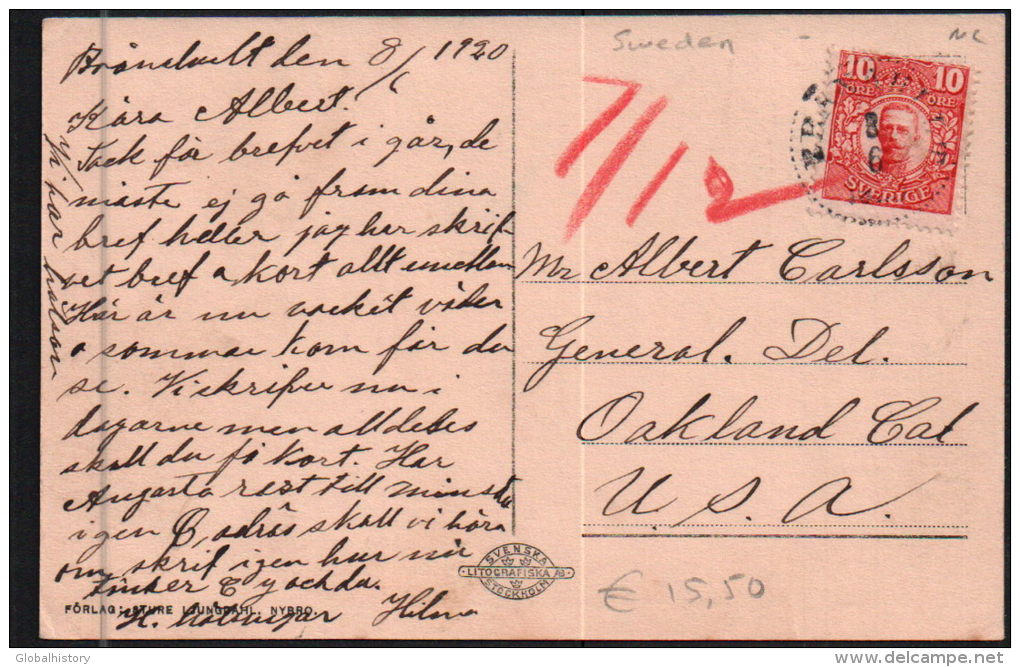 den 8/6 1920
Kära Albert.
Tack för brefvet i går, de
måste ej gå fram dina
bref heller jag har skrif
vet bref o kort allt
Här är nu vacket väder
o sommar kom får du
se. Vi skrifver nu i
dagarne men alldeles
skall du få kort. Har
Augusta rest till
igen adrös skall vi höra
om, skrif igen hur ni
o du.
Hilma
Vi har
FÖRLAG: STURE LJUNGDAHL, NYBRO.
SVENSKA
LITOGRAFISKA AB
STOCKHOLM
Sweden
NC
7/12
10 10
ÖRE ÖRE
SVERIGE
8
6
Mr Albert Carlsson
General. Del.
Oakland Cal
U. S. A.
€ 15,50
Globalhistory
delcampe.net